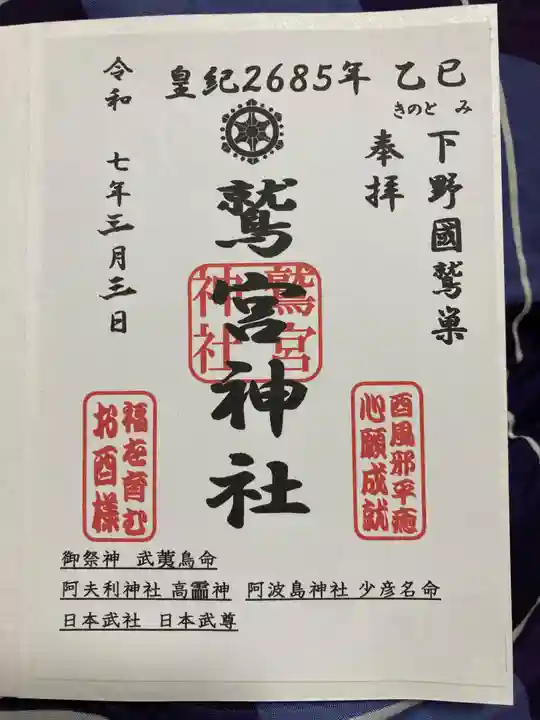 皇紀2685年 乙巳
きのと み
下野國鷲巣
奉拝
鷲宮神社
鷲宮
神社
令和 七年三月三日
酉風邪平癒
心願成就
福を育む
お酉様
御祭神 武夷鳥命
阿夫利神社 高龗神 阿波島神社 少彦名命
日本武社 日本武尊